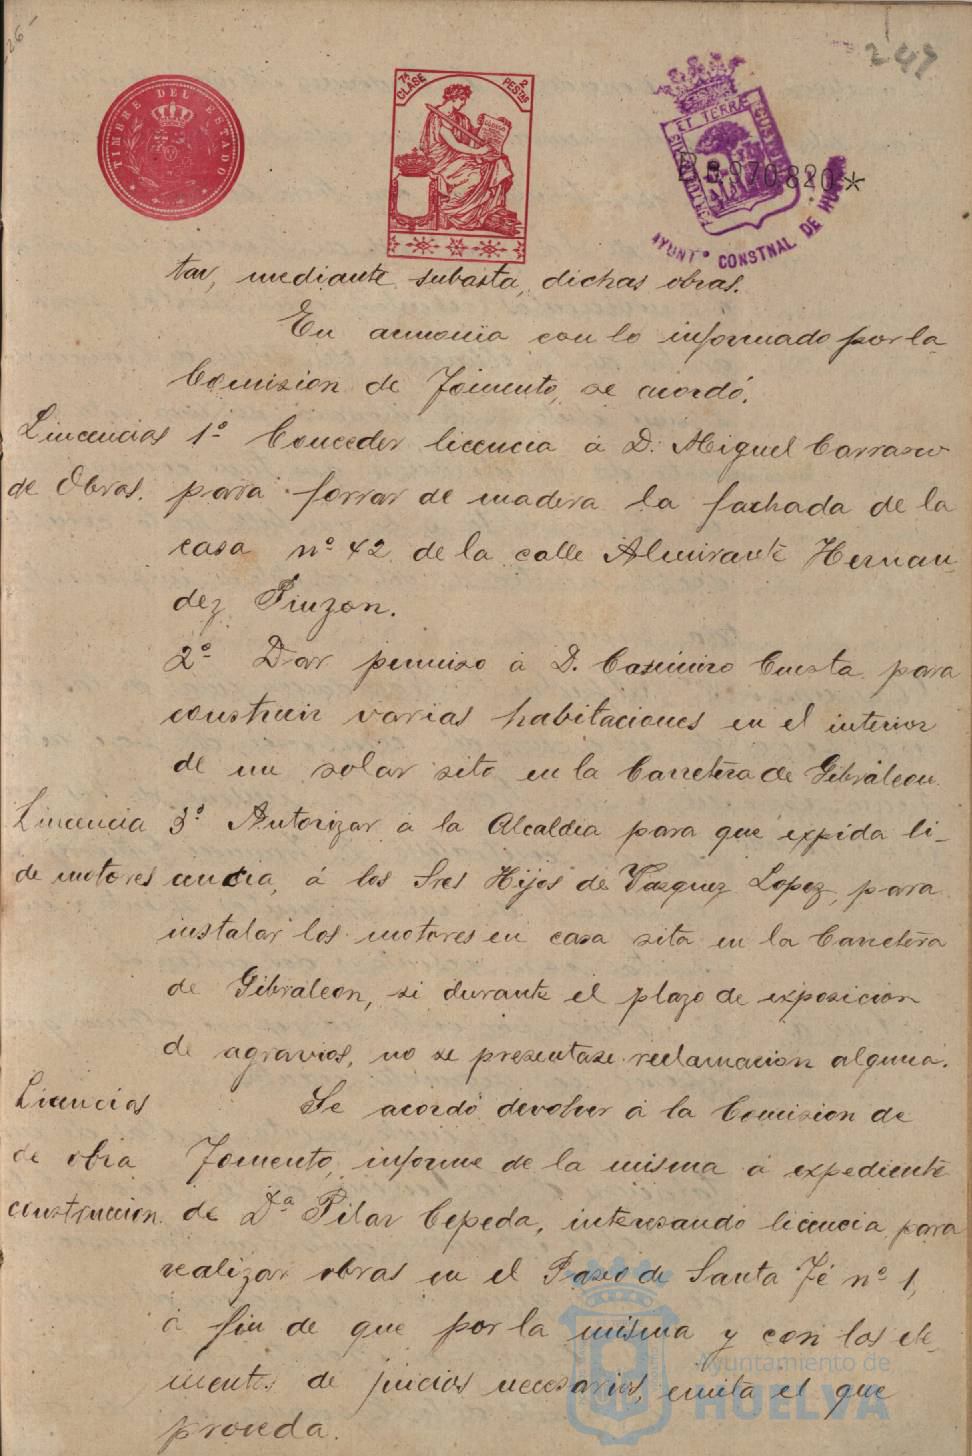 26
249
TIMBRE DEL ESTADO
7ª CLASE
2 PESTAS
ET TERRÆ CUSTODIA
AYUNTº CONSTNAL DE HUELVA
B.8.970.820*
tar, mediante subasta, dichas obras.
En armonia con lo informado por la
Comision de Fomento, se acordó.
Lincencias 1º Conceder licencia á D. Miguel Carrasco
de Obras. para forrar de madera la fachada de la
casa nº 42 de la calle Almirante Hernan-
dez Pinzon.
2º Dar permiso á D. Casimiro Cuesta para
construir varias habitaciones en el interior
de un solar sito en la Carretera de Gibraleon.
Lincencia 3º Autorizar á la Alcaldia para que expida li-
de motores cencia, á los Sres Hijos de Vazquez Lopez, para
instalar los motores en casa sita en la Carretera
de Gibraleon, si durante el plazo de exposicion
de agravios, no se presentase reclamacion alguna.
Licencias Se acordó devolver á la Comision de
de obra Fomento, informe de la misma á expediente
construccion. de Dª Pilar Cepeda, interesando licencia para
realizar obras en el Paseo de Santa Fé nº 1,
á fin de que por la misma y con los ele-
mentos de juicios necesarios, emita el que
proceda.
Ayuntamiento de
HUELVA